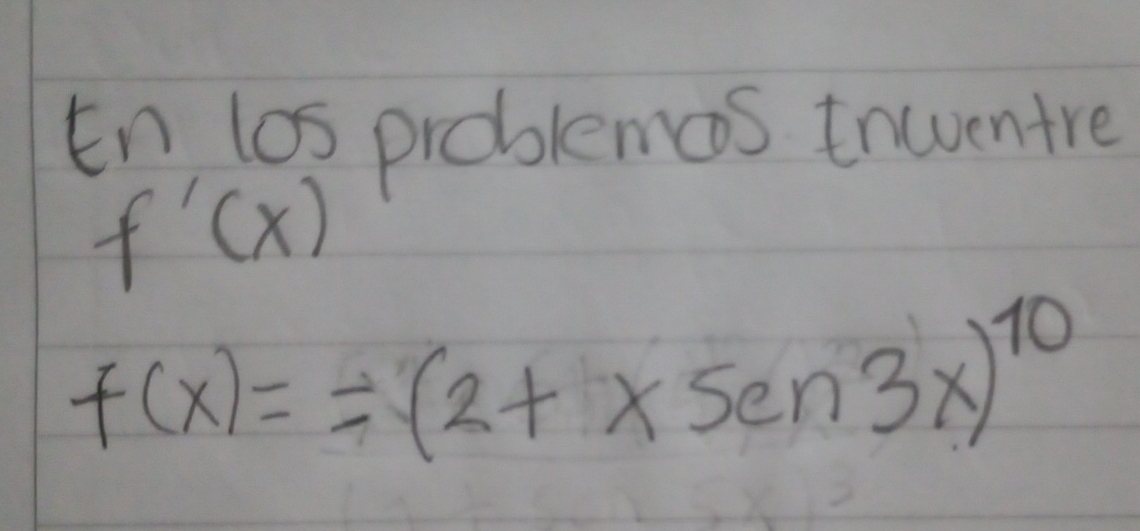 En los problemas. Encuentre
f'(x)
f(x) = = (2 + x sen 3x)^10